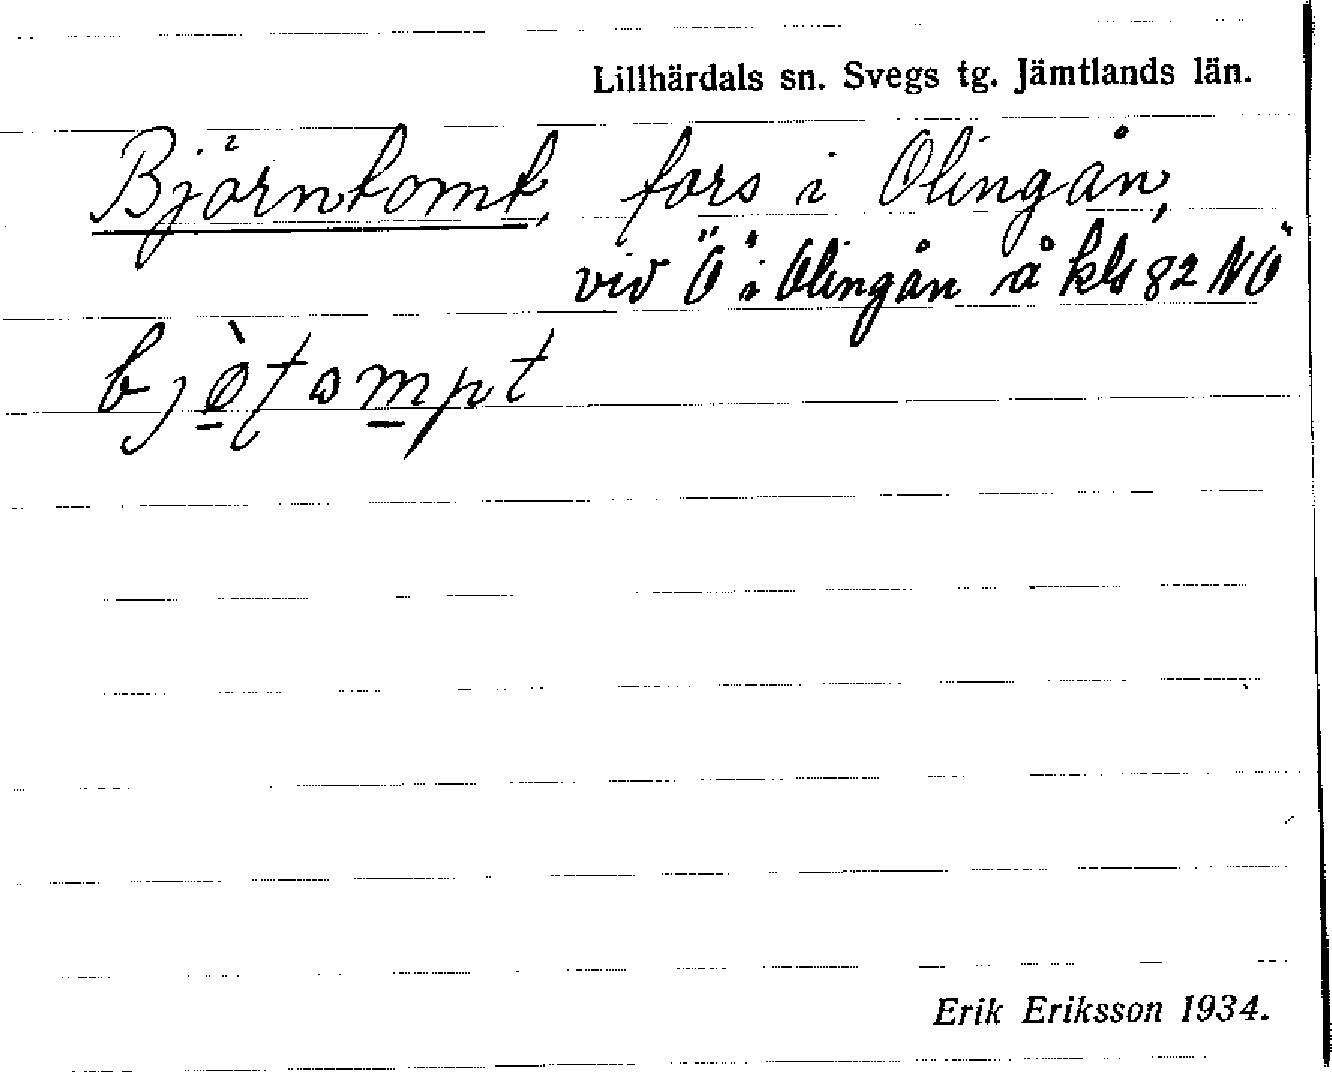 Lillhärdals sn. Svegs tg. Jämtlands län.
Björntomt, fors i Olingån,
vid "Ö" i Olingån å kbl 82 NÖ
bjòtompt
Erik Eriksson 1934.